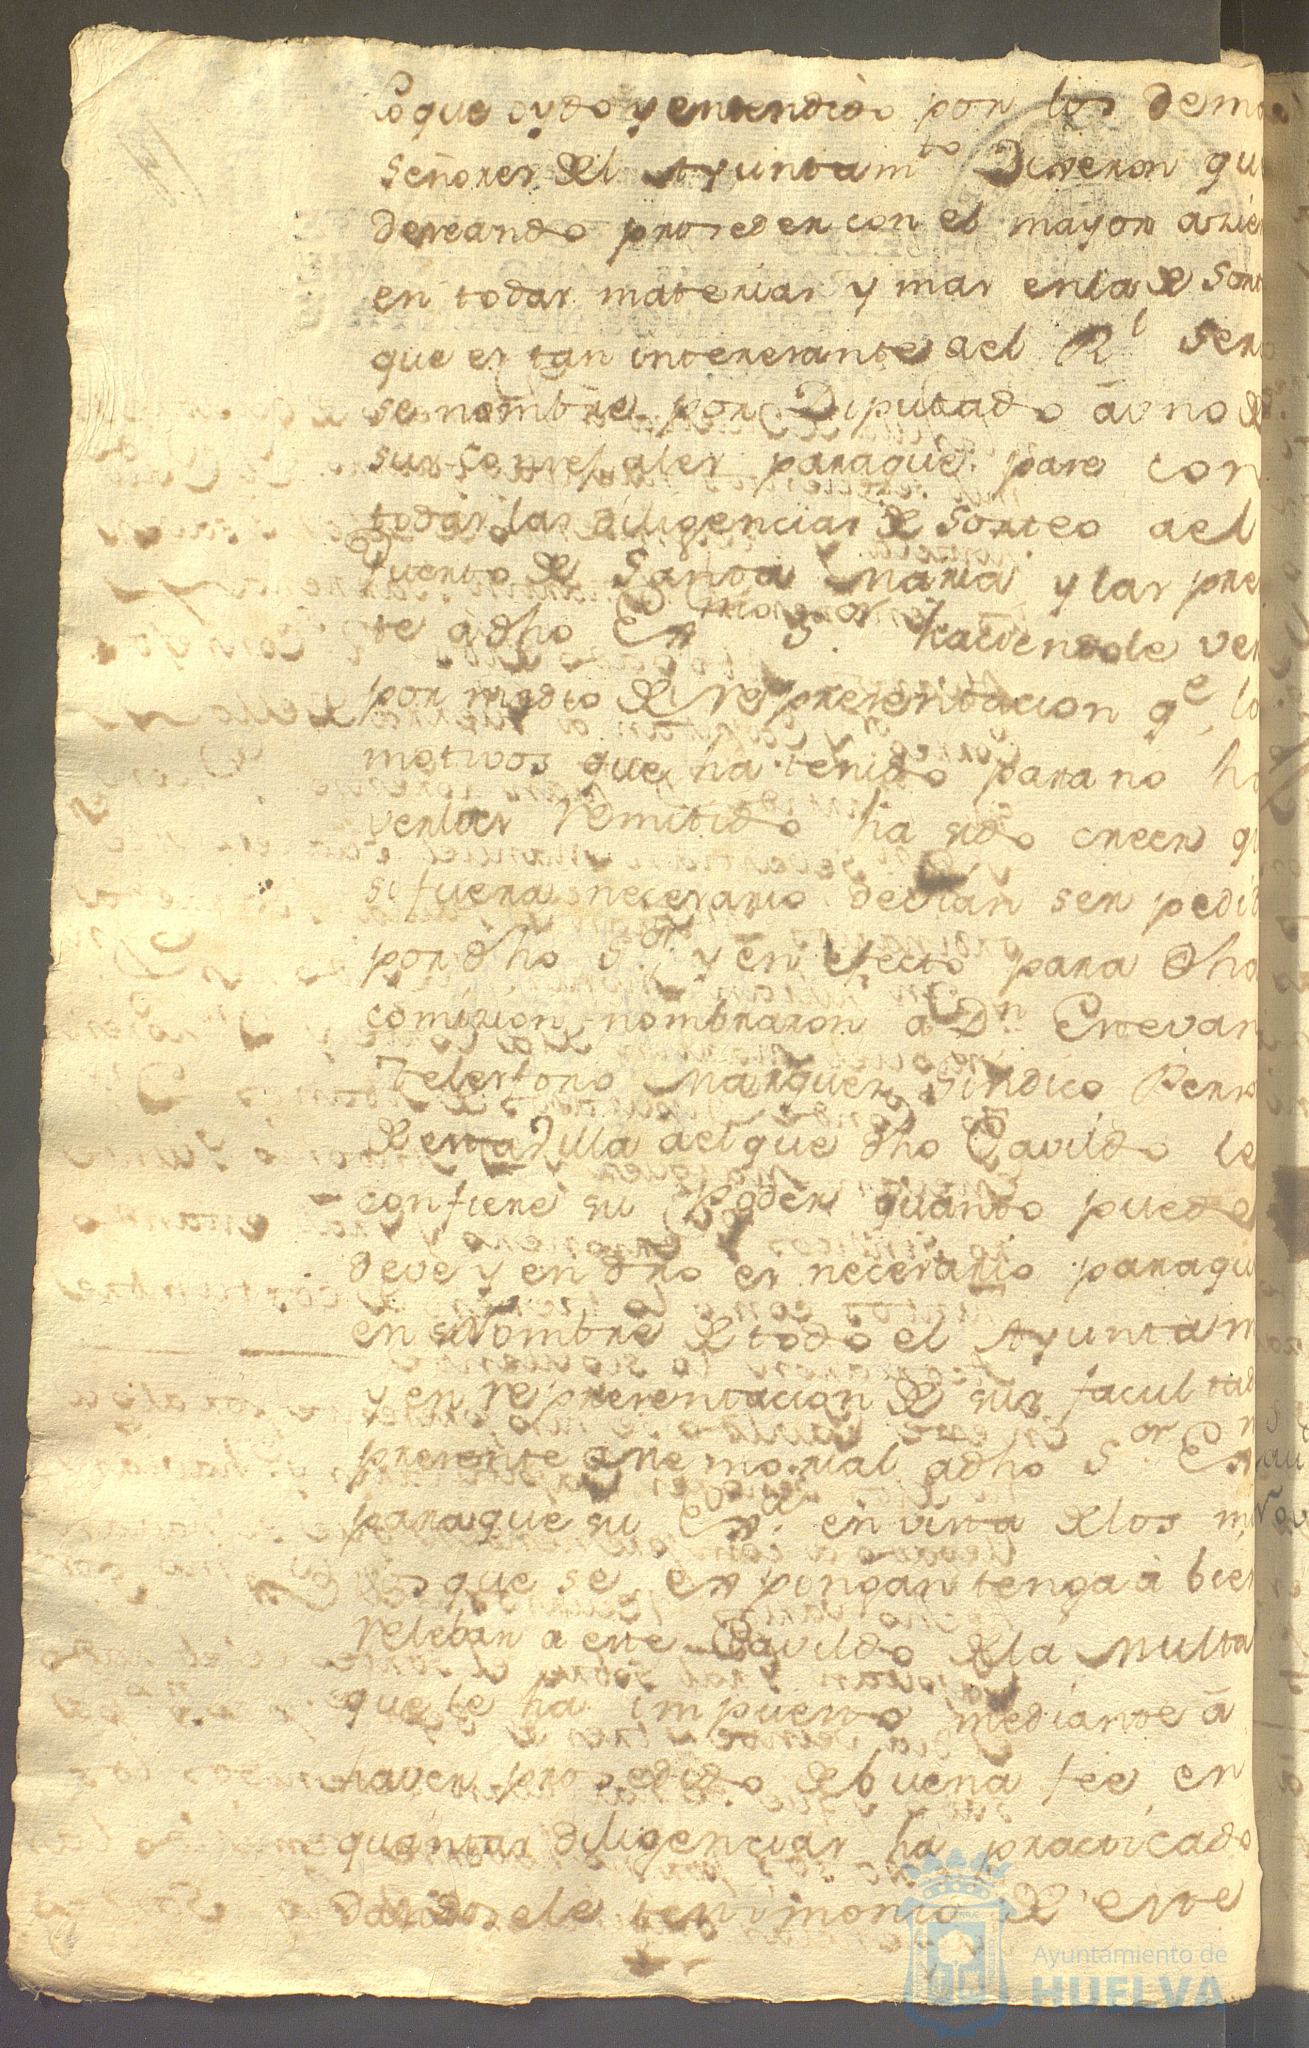 Lo que oydo y entendido por los dema
Señores del Ayuntam.to Dixeron qu
deseando proseder con el mayor asier
en todas materias y mas en la de Sort
que es tan interesante del R.l Serv
se nombre por Diputado á uno de
sus Consejales para que pase con
todas las diligencias de Sorteo al
Puerto de Santa Maria y las pre
te á dho Ex.mo S.or haciendole ver
por medio de representacion q.e lo
motivos que ha tenido para no ha
verlas remitido ha sido creer qu
si fuera necesario devian ser pedid
por dho S.or y en efecto para dha
comizion nombraron a D.n Estevan
Telesforo Marquez Sindico Perso
de esta Villa al que dho Cavildo le
confiere su Poder quanto puede
deve y en dro es necesario para qu
en su Nombre de todo el Ayuntam
y en representacion de sus facultad
presente memorial a dho S.or Ex
para que su Ex.a en vista de los m
os que se expongan tenga á bien
relebar a este Cavildo de la Multa
que le ha impuesto mediante á
haver prosedido de buena fee en
quantas diligencias ha practicado
dandosele testimonio de este
Ayuntamiento de
HUELVA